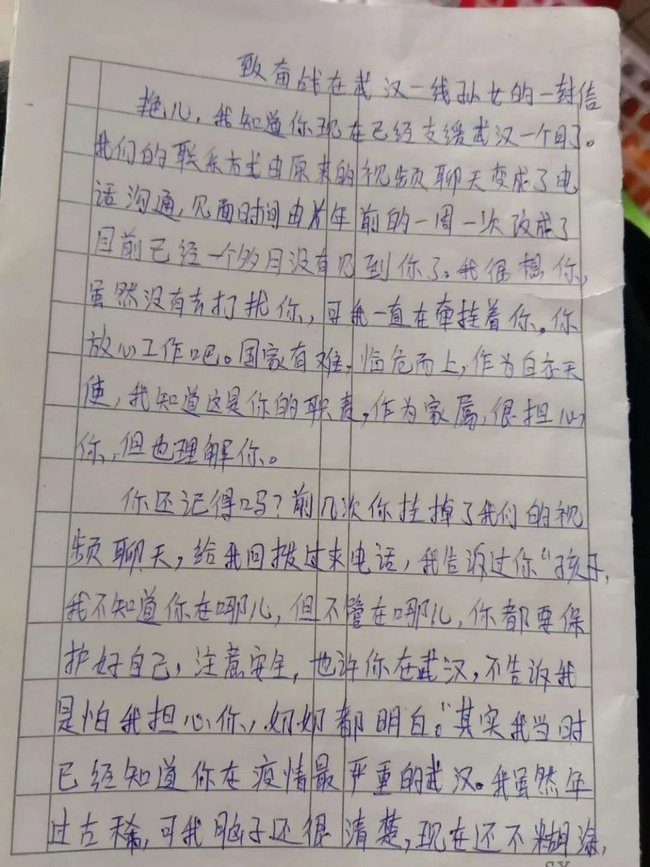 致奋战在武汉一线孙女的一封信
艳儿，我知道你现在已经支援武汉一个月了。
我们的联系方式由原来的视频聊天变成了电
话沟通，见面时间由半年前的一周一次改成了
目前已经一个多月没有见到你了。我很想你，
虽然没有去打扰你，可我一直在牵挂着你。你
放心工作吧。国家有难，临危而上，作为白衣天
使，我知道这是你的职责，作为家属，很担心
你，但也理解你。
你还记得吗？前几次你挂掉了我们的视
频聊天，给我回拨过来电话，我告诉过你“孩子，
我不知道你在哪儿，但不管在哪儿，你都要保
护好自己，注意安全，也许你在武汉，不告诉我
是怕我担心你，奶奶都明白。”其实我当时
已经知道你在疫情最严重的武汉。我虽然年
过古稀，可我脑子还很清楚，现在还不糊涂，